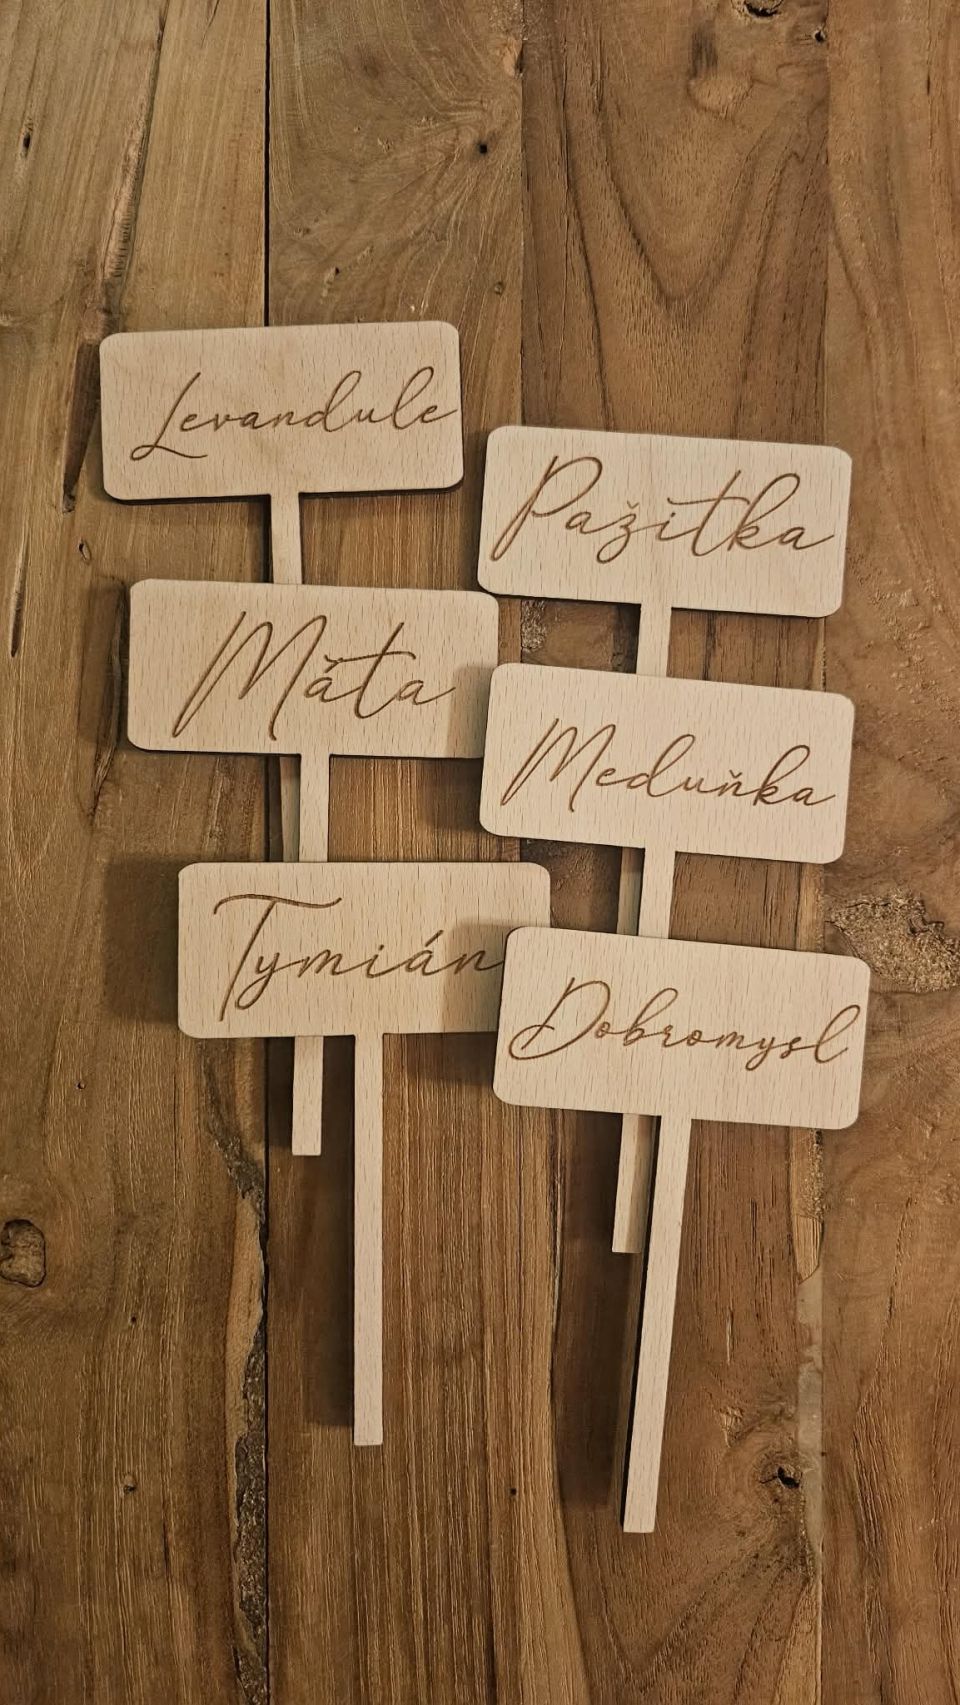 Levandule
Pažitka
Máta
Meduňka
Tymián
Dobromysl